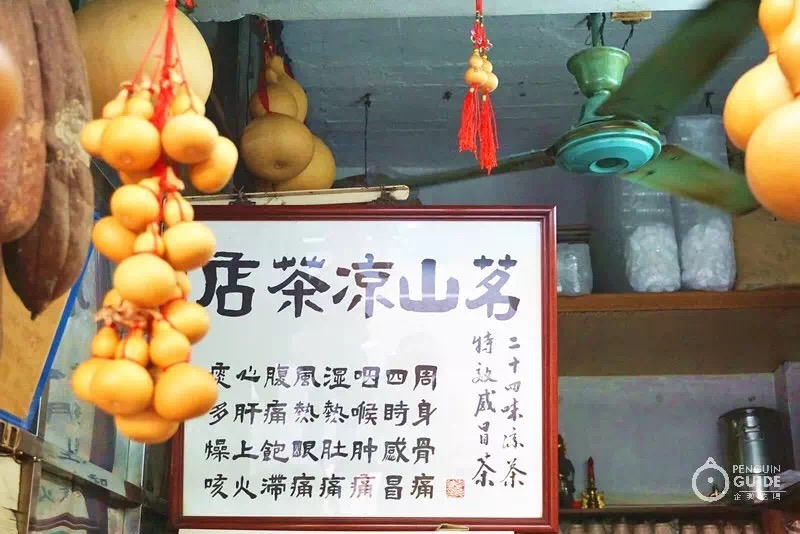 茗山凉茶店
二十四味凉茶
特效感冒茶
周身骨痛
四時感冒
咽喉肿痛
湿熱肚痛
風熱眼痛
腹痛飽滞
心肝上火
痰多燥咳
PENGUIN
GUIDE